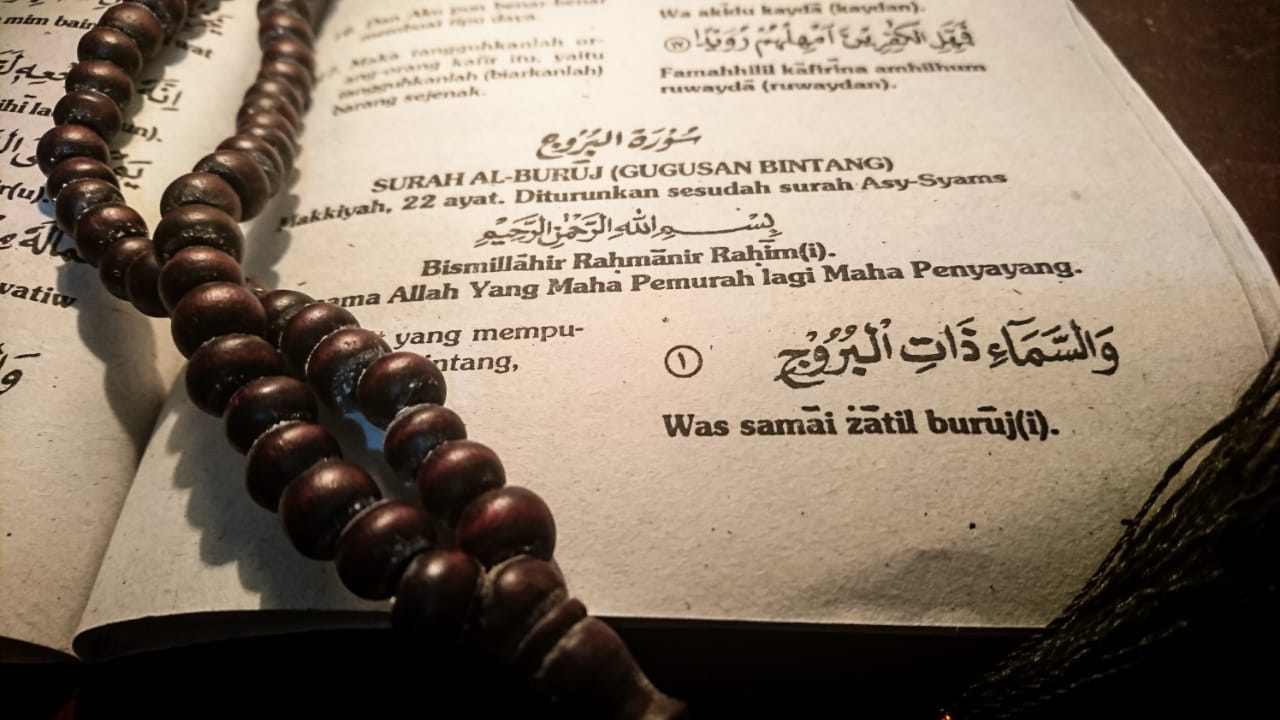 mim bain
aat
ihi la
un).
r(u).
vatiw
16. Dan Aku pun benar-benar
membuat tipu daya.
Maka tangguhkanlah or-
ang-orang kafir itu, yaitu
tangguhkanlah (biarkanlah)
barang sejenak.
Wa akidu kaydā (kaydan).
فَمَهِّلِ الْكٰفِرِيْنَ اَمْهِلْهُمْ رُوَيْدًا ١٧
Famahhilil kāfirīna amhilhum
ruwaydā (ruwaydan).
سُوْرَةُ الْبُرُوْجِ
SURAH AL-BURŪJ (GUGUSAN BINTANG)
Makkiyah, 22 ayat. Diturunkan sesudah surah Asy-Syams
بِسْمِ اللهِ الرَّحْمٰنِ الرَّحِيْمِ
Bismillāhir Raḥmānir Raḥīm(i).
ama Allah Yang Maha Pemurah lagi Maha Penyayang.
yang mempu-
intang,
وَالسَّمَآءِ ذَاتِ الْبُرُوْجِ ١
Was samāi żātil burūj(i).